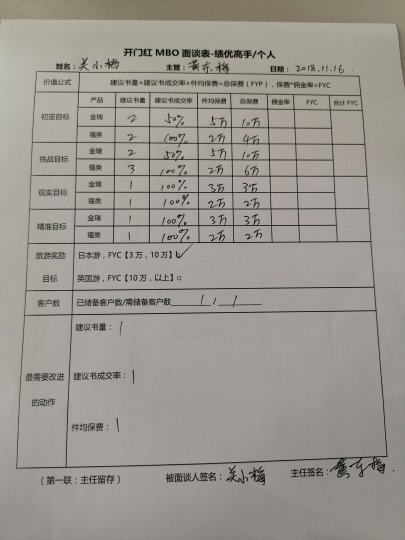 开门红 MBO 面谈表-绩优高手/个人
姓名：吴小梅 主管：黄东梅 日期：2018.11.16.
价值公式 建议书量*建议书成交率*件均保费=总保费（FYP），保费*佣金率=FYC
产品 建议书量 建议书成交率 件均保费 总保费 佣金率 FYC 合计 FYC
初定目标 金瑞 2 50% 5万 10万
福类 2 100% 2万 4万
挑战目标 金瑞 2 50% 5万 10万
福类 3 100% 2万 6万
现实目标 金瑞 1 100% 3万 3万
福类 1 100% 2万 2万
精准目标 金瑞 1 100% 3万 3万
福类 1 100% 2万 2万
旅游奖励目标 日本游，FYC【3 万，10 万】☑
英国游，FYC【10 万，以上】□
客户数 已储备客户数/需储备客户数 1 / 1
最需要改进的动作 建议书量：1
建议书成交率：1
件均保费：1
（第一联：主任留存） 被面谈人签名：吴小梅 主任签名：黄东梅.